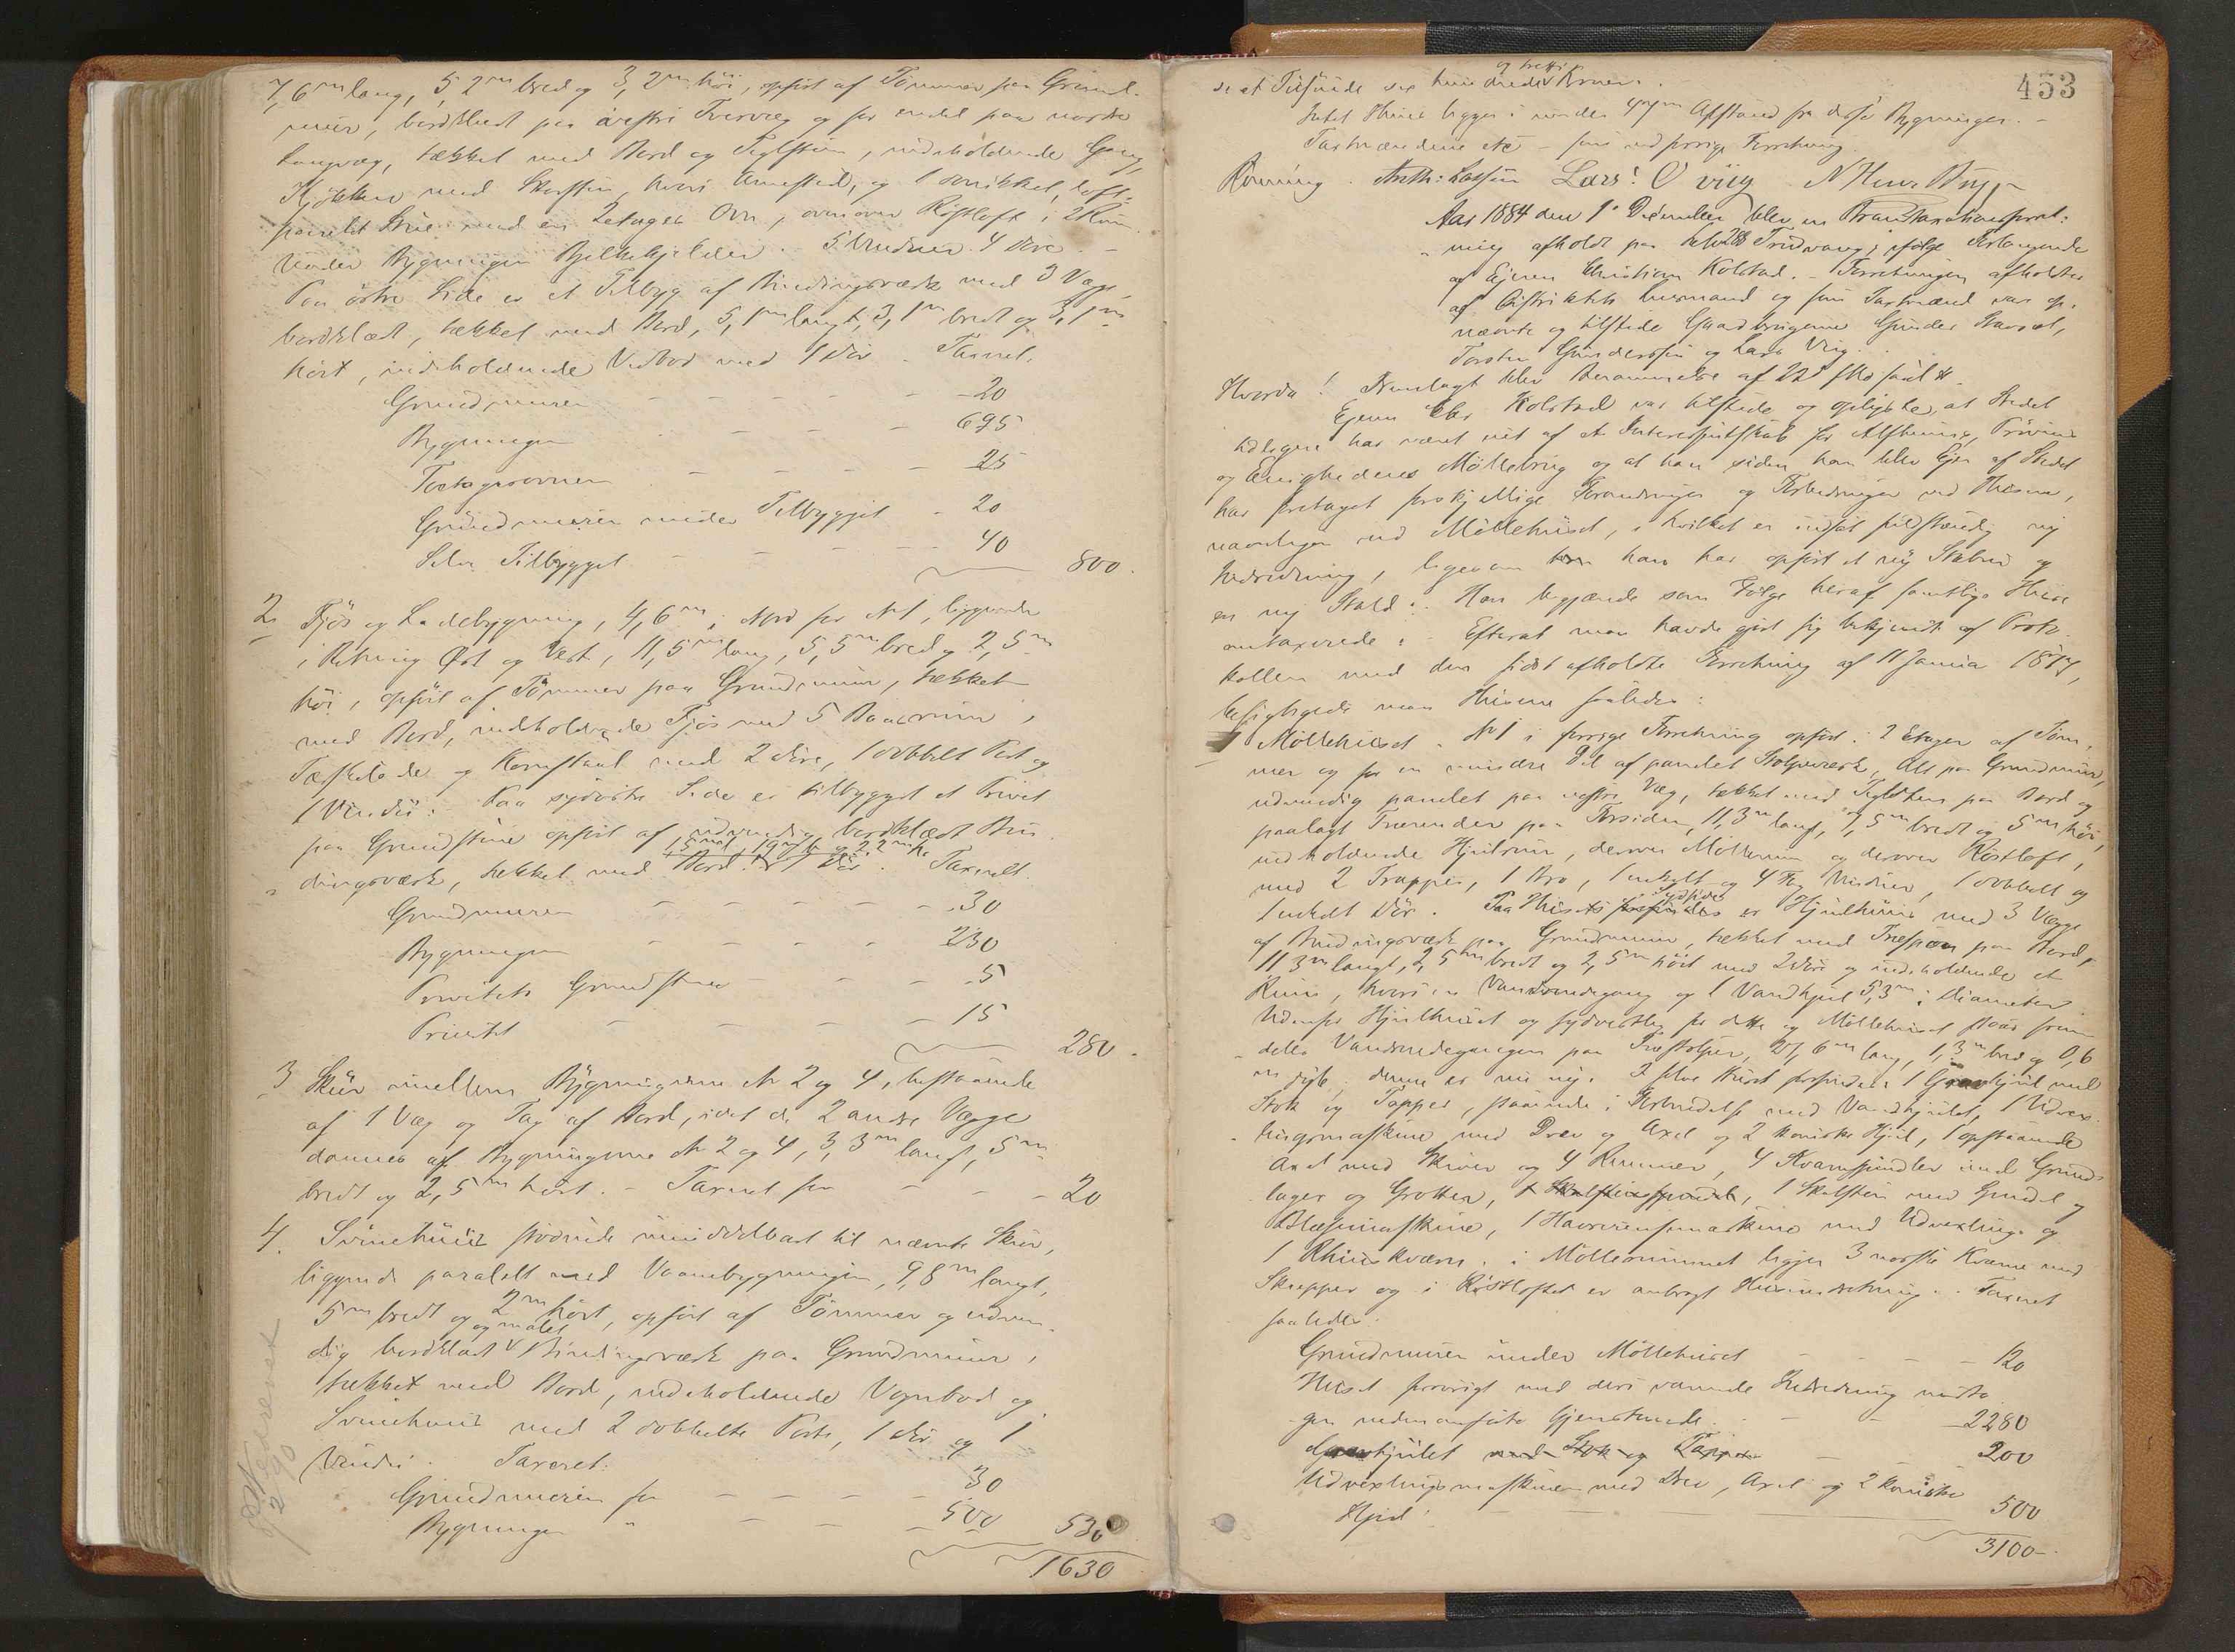 7,6 m lang, 5,2 m bred og 3,2 m höi, opført af Tömmer paa Grund-
muur, bordklædt paa vestre Tvervæg og for endel paa nordre
Langvæg, tækket med Bord og Taglsteen, indeholdende Gang,
Kjökken med Skorsten, hvori Arnested, og 1 snikket, loft-
panelet Stue med en 2etages Ovn, ovenover Röstloft i 2 Rum.
Under Bygningen Bjelkekjelder. 5 Vinduer 4 Döre. -
Paa östre Side er et Tilbyg af Bindingsværk med 3 Vægge,
bordklædt, tækket med Bord, 5,1 m langt, 3,1 m bredt og 3,1 m
höit, indeholdende Vedbod med 1 Dör. Taxeret.
Grundmuren - - - - - 20
Bygningen - - - - 695
Toetagesovnen - - - - - 25
Grundmuren under Tilbygget - 20
Selve Tilbygget - - - - 40
800.
2 Fjös og Ladebygning, 4,6 m i Nord for No 1, liggende
i Retning Øst og Vest, 11,5 m lang, 5,5 m bred og 2,5 m
höi, opfört af Tömmer paa Grundmuur, tækket
med Bord, indeholdende Fjös med 5 Baaserum,
Tærskelade og Kornstaal med 2 Döre, 1 dobbelt Port og
1 Vindu. Paa sydöstre Side er tilbygget et Privet
paa Grundstene opfört af udvendig bordklædt Bin-
1,5 m l, 1,9 m b og 2,2 m h.
dingsværk, tækket med Bord. 1 Dör. Taxeret.
Grundmuren - - - - - 30
Bygningen - - - - 230
Privetets Grundstene - - - 5
Privetet - - - - 15
280.
3 Skur mellem Bygningerne No 2 og 4, bestaaende
af 1 Væg og Tag af Bord, idet de 2 andre Vægge
dannes af Bygningerne No 2 og 4, 3,3 m langt, 5 m
bredt og 2,5 m höit. - Taxeret for - - - 20
4. Svinehuus stödende umiddelbart til nævnte Skur,
liggende paralelt med Vaanebygningen, 9,8 m langt,
5 m bredt og 2 m höit, opfört af Tömmer og udven-
og malet
dig bordklædt Bindingsværk paa Grundmuur,
tækket med Bord, indeholdende Vognbod og
Svinehuus med 2 dobbelte Porte, 1 Dör og 1
Vindu. Taxeret:
Grundmuren for - - - - 30
Bygningen " - - - 500
530
1630
453
og tretti
se et Tusinde sex hundrede Kroner.
Intet Huus ligger i mindre Afstand fra disse Bygninger. -
Taxtmændene etc - som ved forrige Forretning.
Rönning. Anth: Larsen Lars O Viig N Hans Bryge
Aar 1884 den 1 December blev en Brandtaxationsforret-
ning afholdt paa Tridvang ifölge Forlangende
af Ejeren Christian Kolstad. - Forretningen afholdtes
af Distriktets Lensmand og som Taxtmænd var op-
nævnte og tilstede Gaardbrugerne Gunder Stavset,
Torsten Gundersen og Lars Viig.
Hvorda! Fremlagt blev Berammelse af 22 saal
Ejeren Chr Kolstad var tilstede og oplyste, at Stedet
tidligere har været eiet af et Interessentskab for
og Enighedens Möllebrug og at han siden han blev Ejer af Stedet
har foretaget forskjellige Forandringer og Forbedringer ved Husene,
navnligen ved Möllehuset, i hvilket er indsat fuldstændig ny
Indredning, ligesom han har opfört et ny Stabur og
en ny Stald. Han begjærede som Fölge heraf samtlige Huse
omtaxerede. Efterat man havde gjort sig bekjendt af Proto-
kollen med den sidst afholdte Forretning af 11 Januar 1877,
besigtigede man Husene saaledes:
1 Möllehuset. No 1 i forrige Forretning opfört i 2 Etager af Töm-
mer og for en mindre Del af panelet Stolpeværk, Alt paa Grundmuur,
udvendig panelet paa vestre Væg, tækket med Taglsten paa Bord og
paalagt Trærender paa Forsiden, 11,3 m langt, 7,5 m bredt og 5 m höi,
indeholdende Hjulrum, derover Möllerum og derover Röstloft,
med 2 Trapper, 1 Bro, 1 enkelt og 4 Fag Vinduer, 1 dobbelt og
Sydside
1 enkelt Dör. Paa Husets er Hjulhuus med 3 Vægge
af Bindingsværk paa Grundmuur, tækket med Træspaan paa Bord,
11,3 m langt, 2,5 m bredt og 2,5 m höit med 2 Döre og indeholdende et
Rum, hvori er Vandrendegang og 1 Vandhjul 5,3 m i Diameter.
Udenfor Hjulhuset og sydvestlig for dette og Möllehuset staar frem-
deles Vandrendegangen paa Træstolper, 27,6 m lang, 1,3 m bred og 0,6
m dyb; denne er nu ny. I selve Huset forfindes 1 hjul med
Stok og Tapper, staaende i Forbindelse med Vandhjulet, 1 Udvex-
lingsmaskine med Drev og Axel og 2 koniske Hjul, 1 opstaaende
Axel med Skiver og 4 Remmer, 4 Kvarnspindler med Grund-
lager og Grotter, 1 Skalstensspindel, 1 Skalsten med Spindel og
Blæsemaskine, 1 Havrerensemaskine med Udvexlings og
1 Rhinskværn. i Möllerummet ligger 3 norske Kværne med
Skupper og i Röstloftet er anbragt Heiseindretning. Taxeret
saaledes:
Grundmuren under Möllehuset - - - - 120
Huset forövrigt med deri værende Indredning undta-
gen nedenanförte Gjenstande. - - 2280
hjulet med Stok og Tapper - - 200
Udvexlingsmaskinen med Drev, Axel og 2 koniske
Hjul - - - 500
3100-